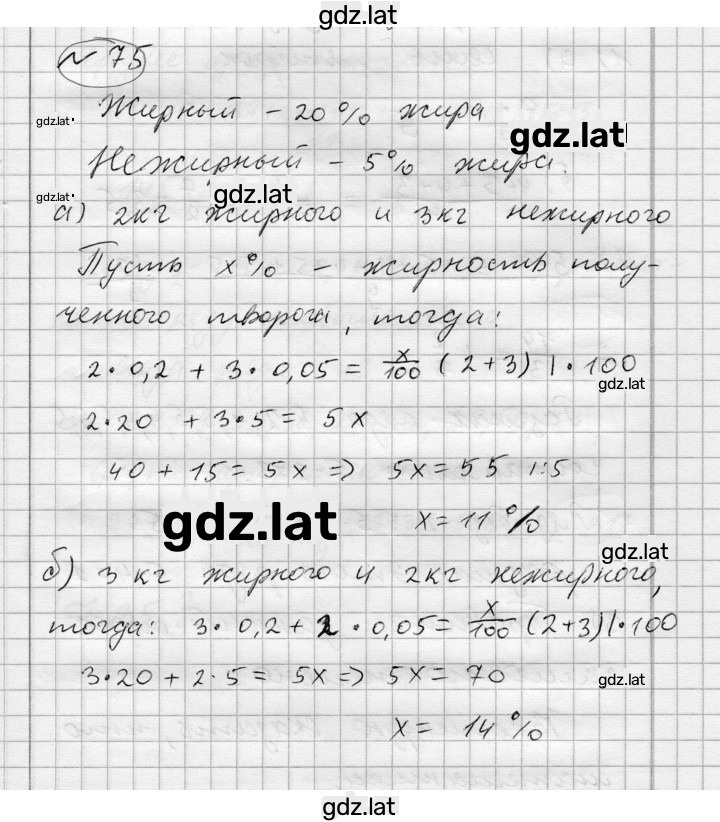 gdz.lat
№ 75
Жирный - 20% жира
gdz.lat
gdz.lat
Нежирный - 5% жира.
gdz.lat
а) 2кг жирного и 3кг нежирного
Пусть x% - жирность полу-
ченного творога, тогда:
2·0,2 + 3·0,05 = x/100 (2+3) |·100
gdz.lat
2·20 + 3·5 = 5x
40 + 15 = 5x => 5x = 55 |:5
gdz.lat
x = 11%
gdz.lat
б) 3кг жирного и 2кг нежирного,
тогда: 3·0,2 + 2·0,05 = x/100 (2+3) |·100
3·20 + 2·5 = 5x => 5x = 70
gdz.lat
x = 14%
gdz.lat